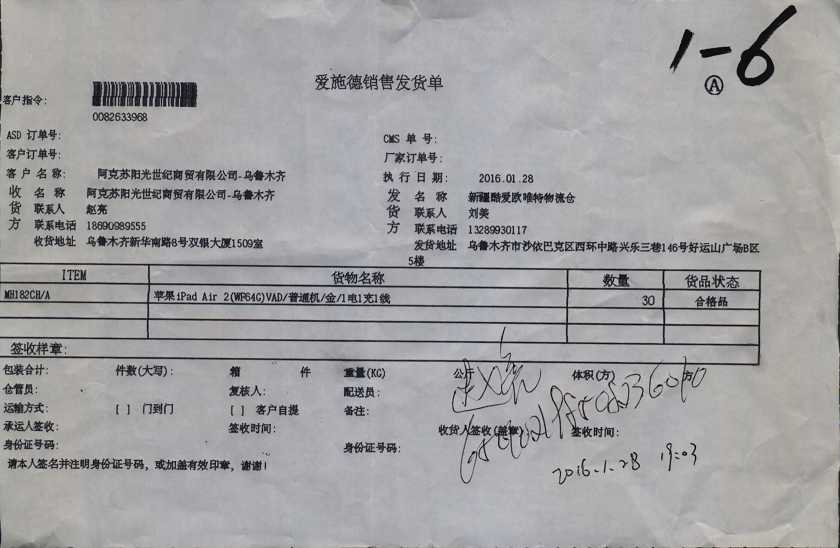 1-6
A
爱施德销售发货单
客户指令:
0082633968
ASD 订单号: CMS 单 号:
客户订单号: 厂家订单号:
客 户 名 称: 阿克苏阳光世纪商贸有限公司-乌鲁木齐 执 行 日 期: 2016.01.28
收 名 称 阿克苏阳光世纪商贸有限公司-乌鲁木齐 发 名 称 新疆酷爱欧唯特物流仓
货 联系人 赵亮 货 联系人 刘美
方 联系电话 18690989555 方 联系电话 13289930117
收货地址 乌鲁木齐新华南路8号双银大厦1509室 发货地址 乌鲁木齐市沙依巴克区西环中路兴乐三巷146号好运山广场B区
5楼
ITEM 货物名称 数量 货品状态
MH182CH/A 苹果iPad Air 2(WF64G)VAD/普通机/金/1电1充1线 30 合格品
签收样章:
包装合计: 件数(大写): 箱 件 重量(KG) 公斤 体积(方) 方
仓管员: 复核人: 配送员:
运输方式: [ ] 门到门 [ ] 客户自提 备注:
承运人签收: 签收时间: 收货人签收(盖章) 签收时间:
身份证号码: 身份证号码:
请本人签名并注明身份证号码, 或加盖有效印章, 谢谢!
2016.1.28 19:03